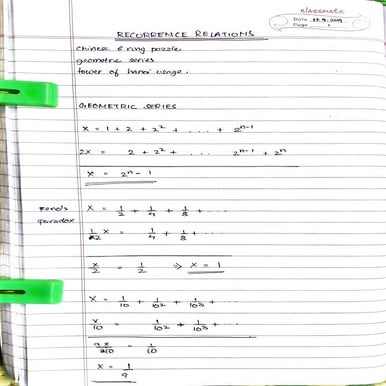 classmate
Date 17.9.2019
Page 1
RECURRENCE RELATIONS
chinese 6 ring puzzle.
geometric series
tower of hanoi usage.
GEOMETRIC SERIES
X = 1 + 2 + 2² + . . . . + 2ⁿ⁻¹
2X = 2 + 2² + . . . . 2ⁿ⁻¹ + 2ⁿ
X = 2ⁿ - 1
paradox X = 1/2 + 1/4 + 1/8 + ...
1/2 X = 1/4 + 1/8 + ...
X/2 = 1/2 ⇒ X = 1
X = 1/10 + 1/10² + 1/10³ + ...
X/10 = 1/10² + 1/10³ + ...
9X/10 = 1/10
X = 1/9